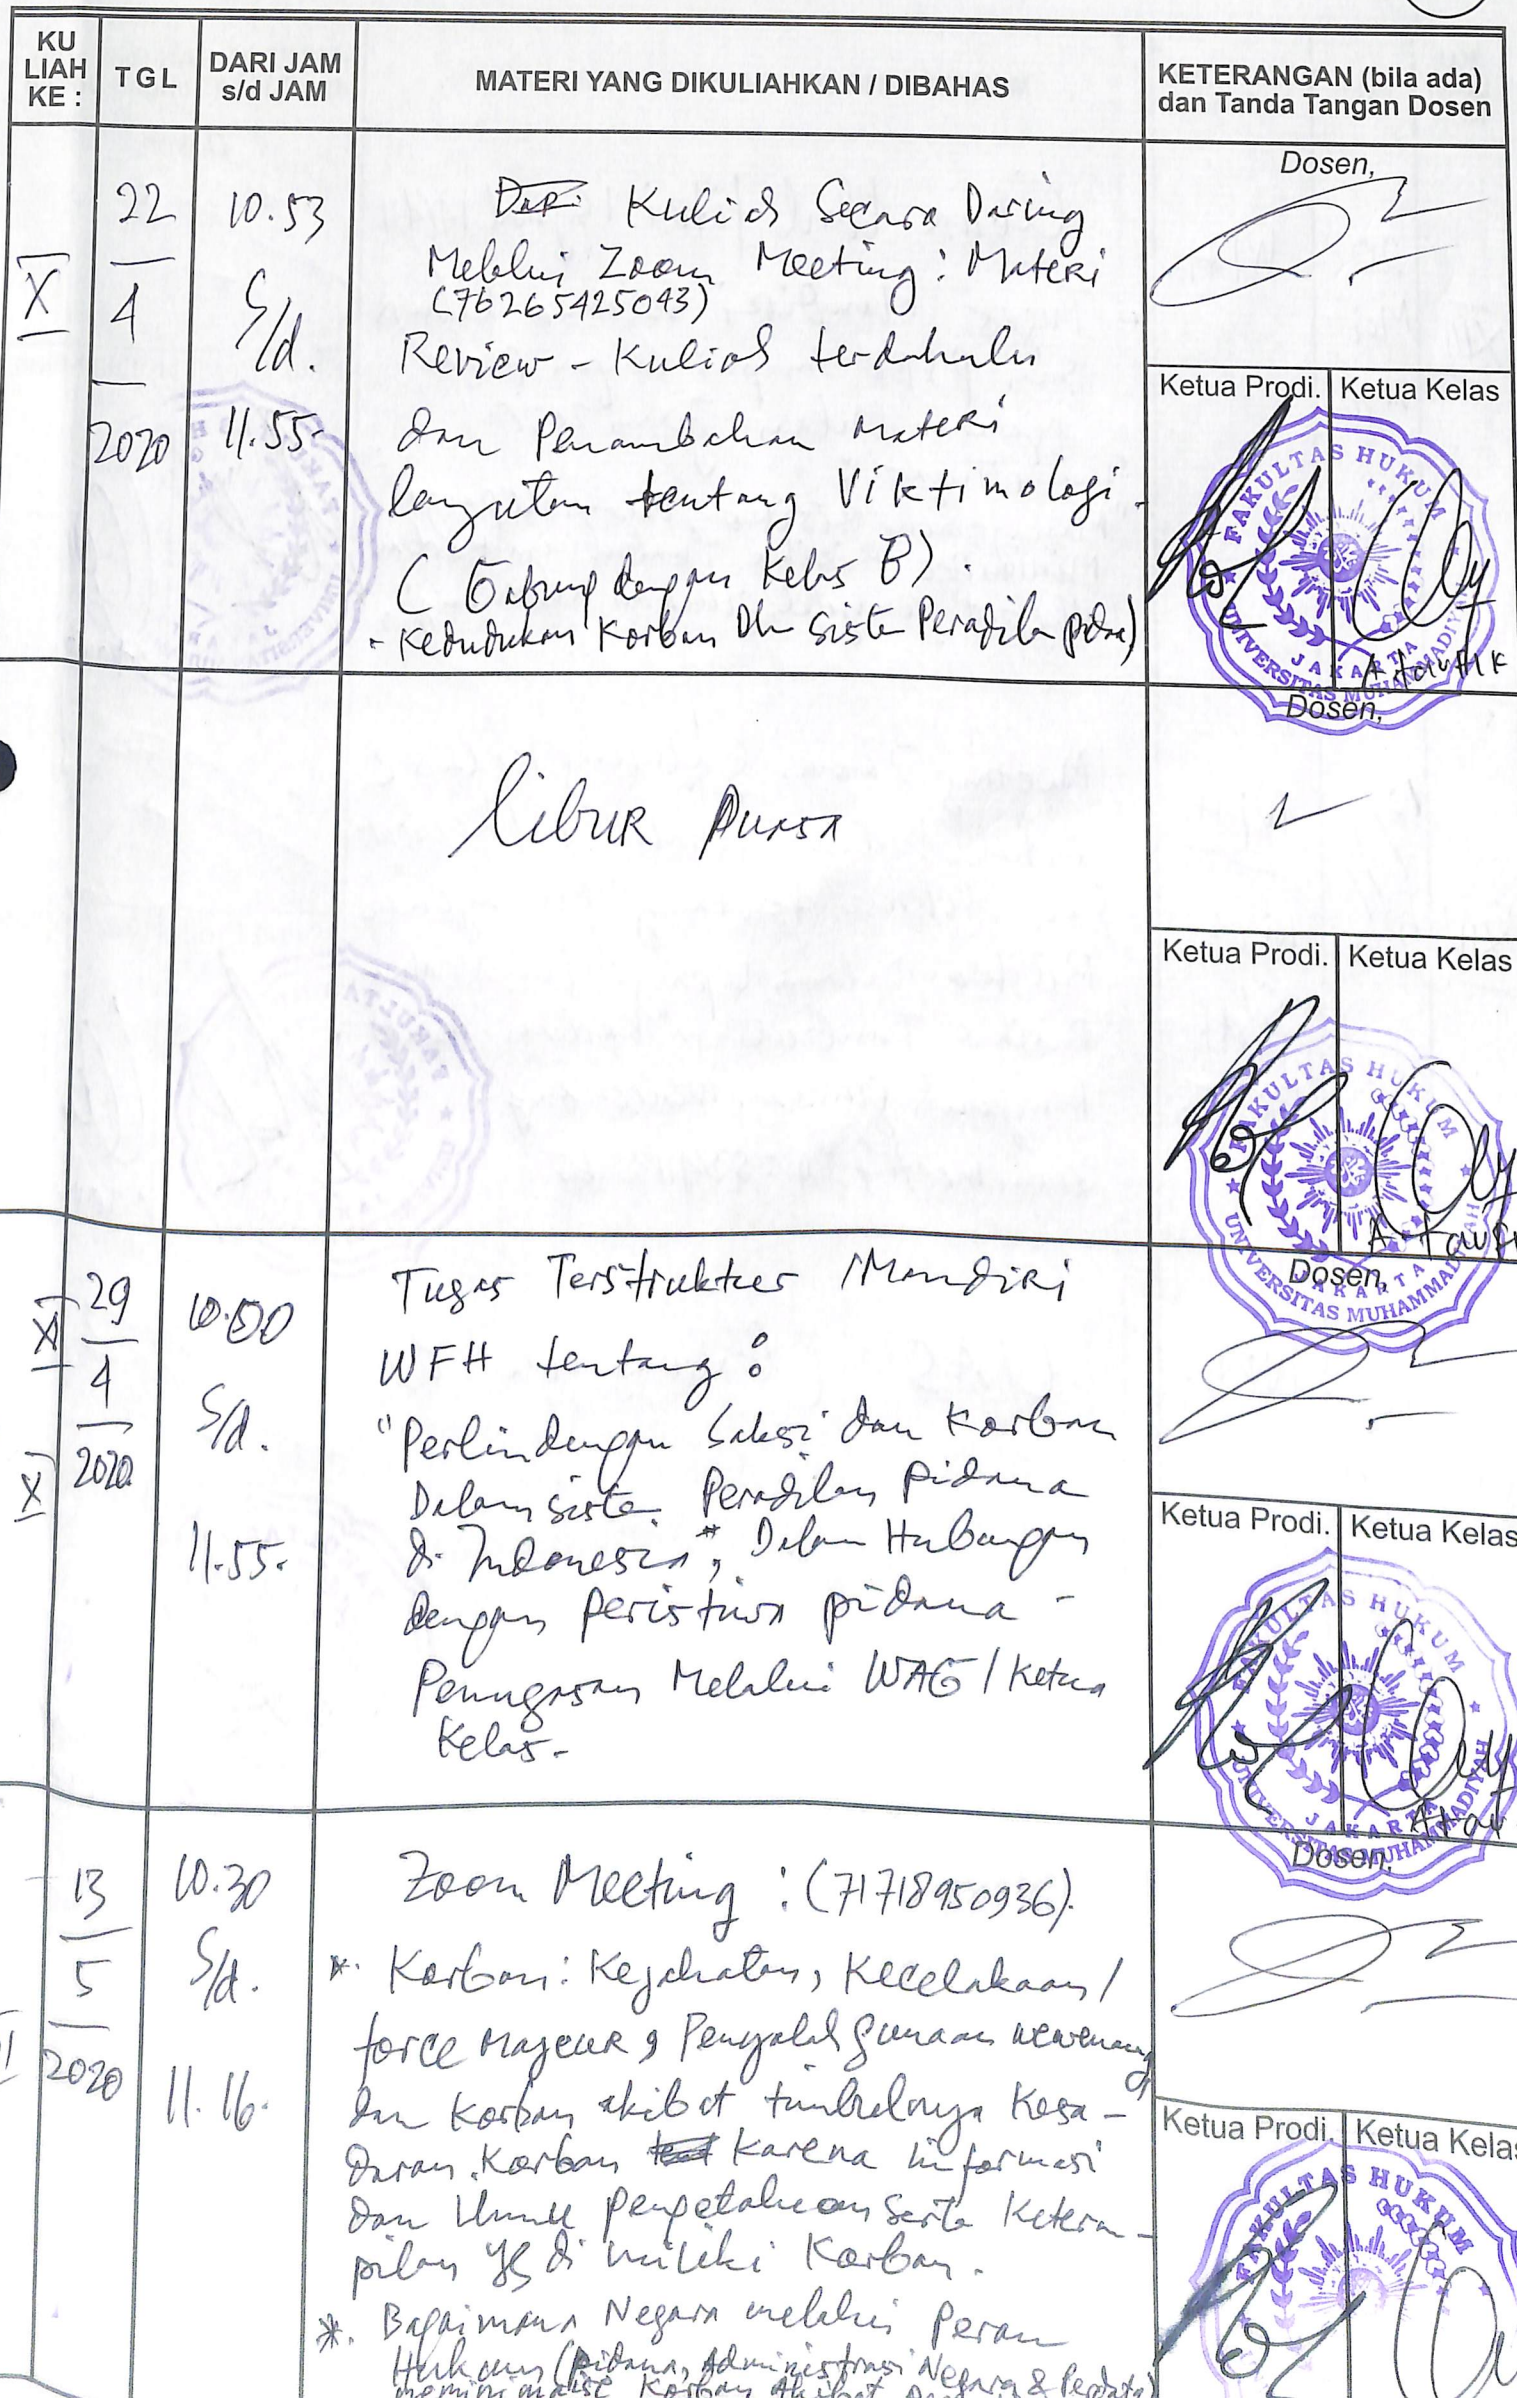 KU
LIAH
KE :
TGL
DARI JAM
s/d JAM
MATERI YANG DIKULIAHKAN / DIBAHAS
KETERANGAN (bila ada)
dan Tanda Tangan Dosen
X
22
4
2020
10.53
S/d.
11.55-
Kuliah Secara Daring
Melalui Zoom Meeting : Materi
(76265425043)
Review - Kuliah terdahulu
dan Penambahan materi
lanjutan tentang Viktimologi -
( Gabung dengan Kelas B) .
- Kedudukan Korban Dlm Sistem Peradilan pidana)
Dosen,
Ketua Prodi.
Ketua Kelas
FAKULTAS HUKUM
UNIVERSITAS MUHAMMADIYAH
JAKARTA
A. taufik
Libur Puasa
Dosen,
Ketua Prodi.
Ketua Kelas
FAKULTAS HUKUM
UNIVERSITAS MUHAMMADIYAH
JAKARTA
XI
X
29
4
2020
10.00
S/d.
11.55-
Tugas Terstruktur Mandiri
WFH tentang :
"Perlindungan Saksi dan Korban
Dalam sistem Peradilan Pidana
di Indonesia", Dalam Hubungan
dengan peristiwa pidana -
Penugasan Melalui WAG / Ketua
Kelas-
Dosen,
Ketua Prodi.
Ketua Kelas
FAKULTAS HUKUM
UNIVERSITAS MUHAMMADIYAH
JAKARTA
13
5
2020
10.30
S/d.
11.16-
Zoom Meeting : (71718950936).
*. Korban : Kejahatan, Kecelakaan /
force majeur, Penyalah gunaan wewenang
dan Korban akibat timbulnya Kesa -
daran Korban Karena informasi
dan Ilmu pengetahuan Serta Keteram -
pilan yg di miliki Korban.
*. Bagaimana Negara melalui Peran
Hukum (pidana, Administrasi Negara & Perdata)
Korban Akibat
Dosen,
Ketua Prodi.
Ketua Kelas
FAKULTAS HUKUM